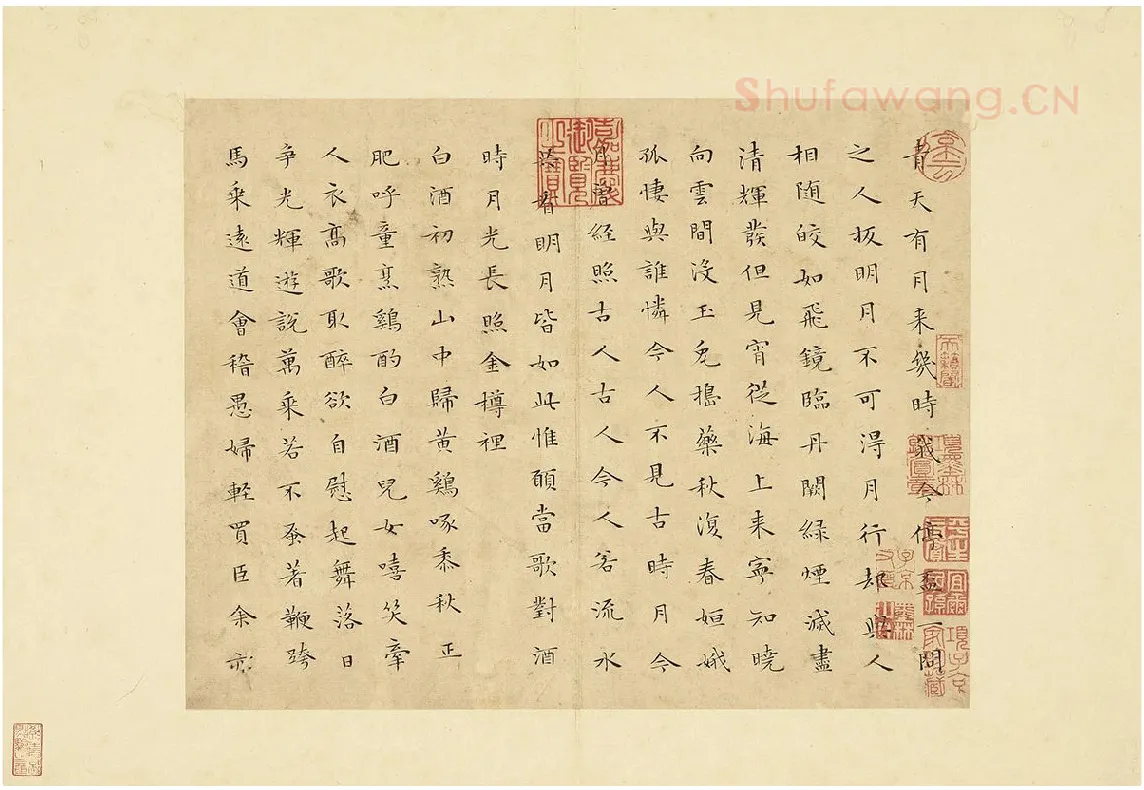 Shufawang.CN
青天有月来幾時我今停盃一問
之人扳明月不可得月行却與人
相随皎如飛鏡臨丹闕緑煙滅盡
清輝發但見宵從海上来寧知曉
向雲間没玉兔搗藥秋復春姮娥
孤悽與誰憐今人不見古時月今
月曾經照古人古人今人若流水
共看明月皆如此惟願當歌對酒
時月光長照金樽裡
白酒初熟山中歸黄鷄啄黍秋正
肥呼童烹鷄酌白酒兒女嘻笑牽
人衣高歌取醉欲自慰起舞落日
争光輝遊說萬乗若不蚤著鞭跨
馬乗遠道會稽愚婦軽買臣余亦
嘉慶御覽之寶
天籟閣